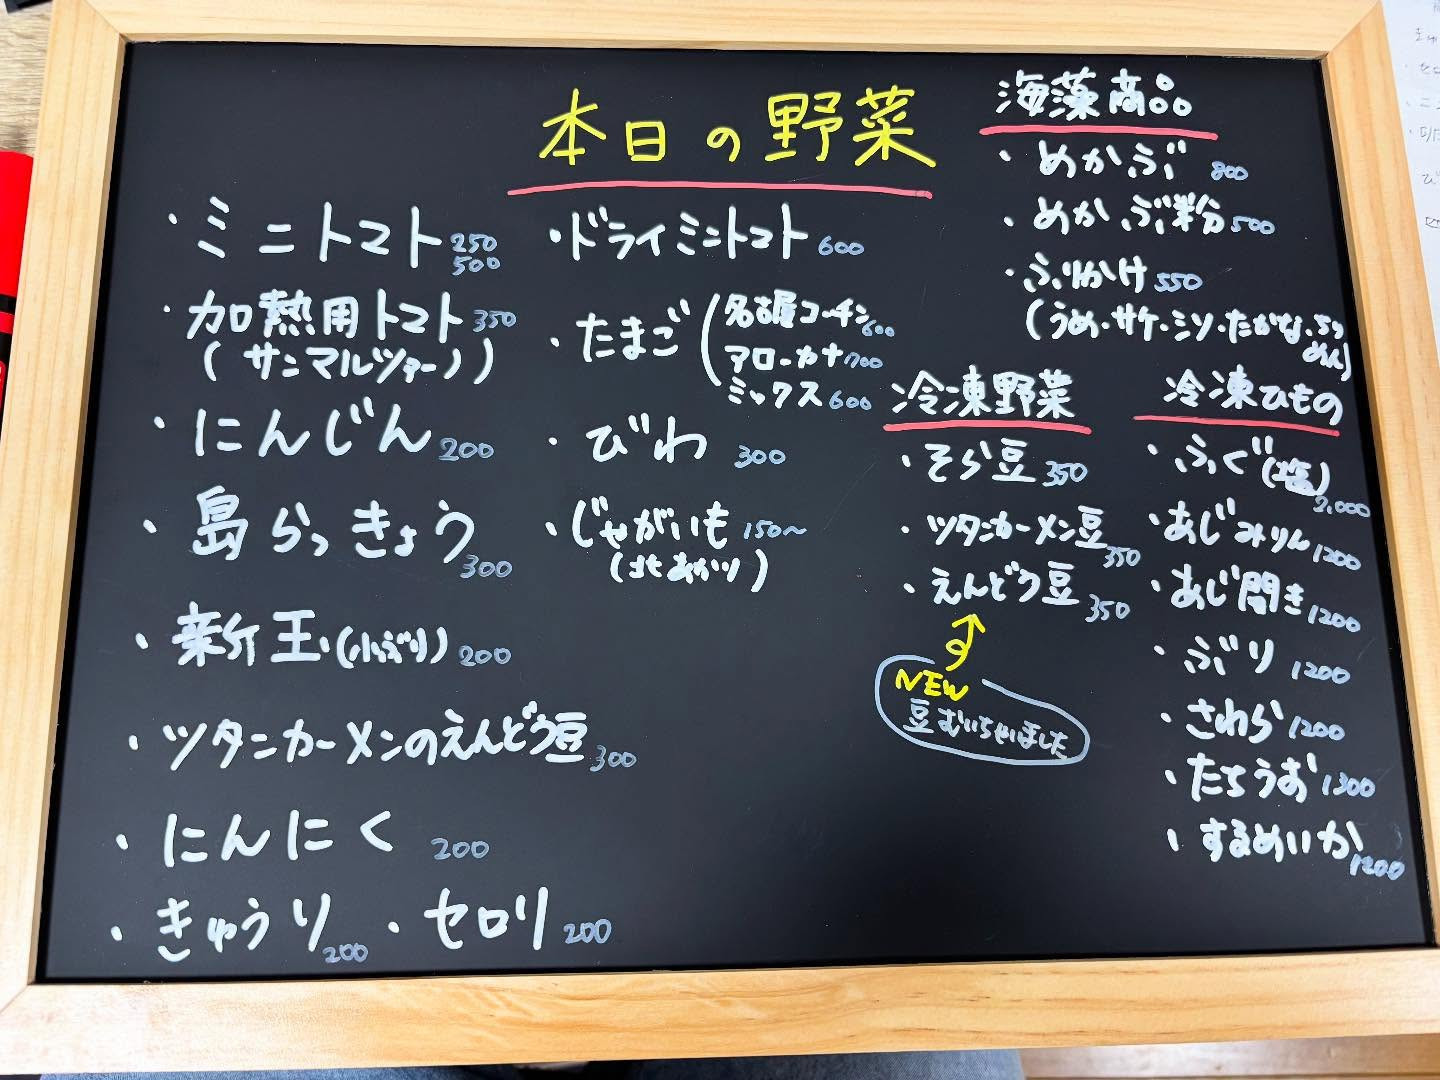 本日の野菜
・ミニトマト 250 500
・加熱用トマト 350
(サンマルツァーノ)
・にんじん 200
・島らっきょう 300
・新玉(小ぶり) 200
・ツタンカーメンのえんどう豆 300
・にんにく 200
・きゅうり 200 ・セロリ 200
・ドライミニトマト 600
・たまご(名古屋コーチン 600
アローカナ 700
ミックス 600
・びわ 300
・じゃがいも 150〜
(北あかり)
海藻商品
・めかぶ 800
・めかぶ粉 500
・ふりかけ 550
(うめ・サケ・ミソ・たかな・ちりめん)
冷凍野菜
・そら豆 350
・ツタンカーメン豆 350
・えんどう豆 350
NEW
豆むいちゃいました
冷凍ひもの
・ふぐ(塩) 2,000
・あじみりん 1200
・あじ開き 1200
・ぶり 1200
・さわら 1200
・たちうお 1300
・するめいか 1200